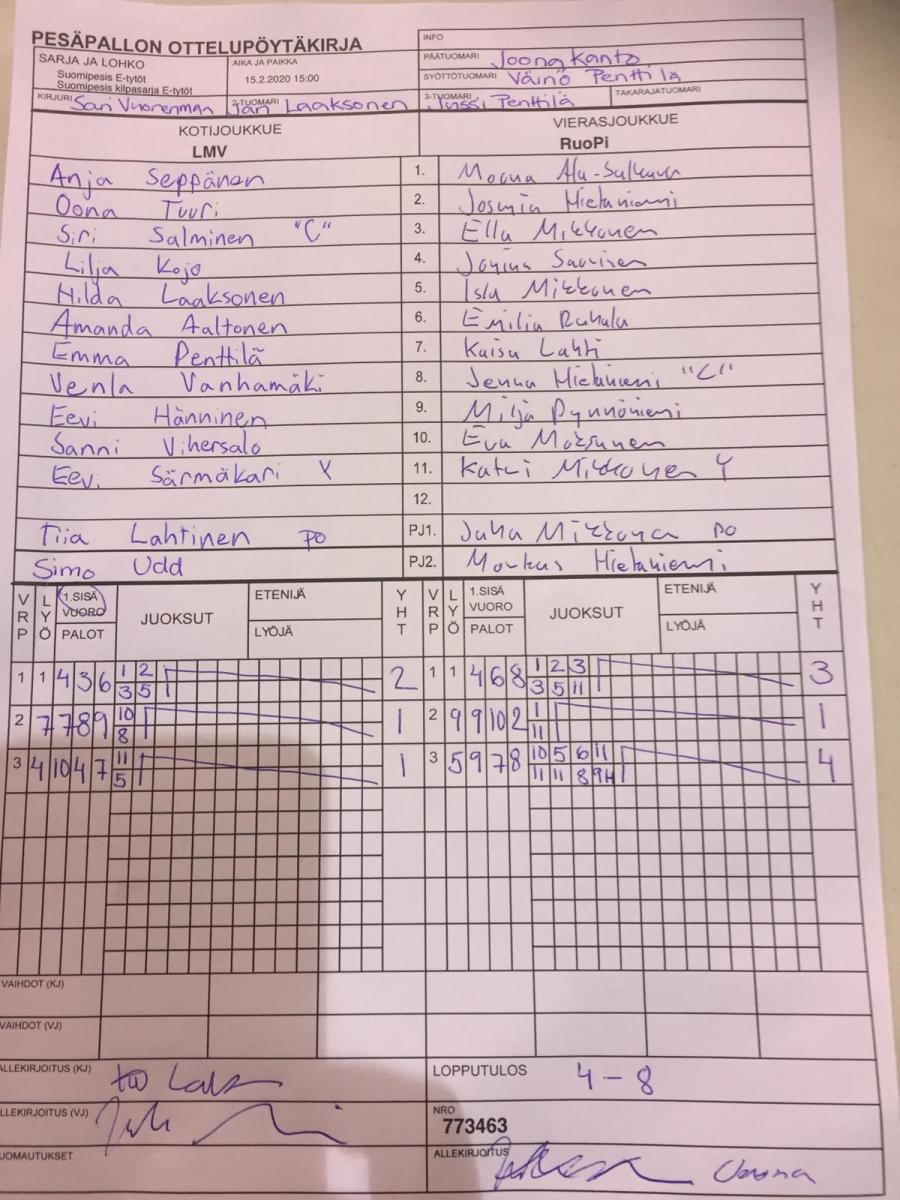 PESÄPALLON OTTELUPÖYTÄKIRJA
INFO
SARJA JA LOHKO
Suomipesis E-tytöt
Suomipesis kilpasarja E-tytöt
AIKA JA PAIKKA
15.2.2020 15:00
PÄÄTUOMARI Joona Kanto
SYÖTTÖTUOMARI Väinö Penttilä
KIRJURI Sari Vuorenmaa 2-TUOMARI Jari Laaksonen 3-TUOMARI Jussi Penttilä TAKARAJATUOMARI
KOTIJOUKKUE VIERASJOUKKUE
LMV RuoPi
Anja Seppänen 1. Moona Ala-Sulkava
Oona Tuuri 2. Josmia Hietaniemi
Siri Salminen "C" 3. Ella Mikkonen
Lilja Kojo 4. Janina Saarinen
Hilda Laaksonen 5. Isla Mikkonen
Amanda Aaltonen 6. Emilia Ruhala
Emma Penttilä 7. Kaisa Lahti
Venla Vanhamäki 8. Jenna Hietaniemi "C"
Eevi Hänninen 9. Milja Pynnöniemi
Sanni Vihersalo 10. Eva Moksunen
Eevi Särmäkari X 11. Katri Mikkonen Y
12.
Tiia Lahtinen PO PJ1. Juha Mikkonen PO
Simo Udd PJ2. Markus Hietaniemi
VRP LYÖ 1.SISÄ VUORO PALOT JUOKSUT ETENIJÄ LYÖJÄ YHT VRP LYÖ 1.SISÄ VUORO PALOT JUOKSUT ETENIJÄ LYÖJÄ YHT
1 1 4 3 6 1 2 2 1 1 4 6 8 1 2 3 3
3 5 3 5 11
2 7 7 8 9 10 1 2 9 9 10 2 1 1
8 11
3 4 10 4 7 11 1 3 5 9 7 8 10 5 6 11 4
5 11 11 8 9H
VAIHDOT (KJ)
VAIHDOT (VJ)
ALLEKIRJOITUS (KJ) LOPPUTULOS 4 - 8
ALLEKIRJOITUS (VJ) NRO
773463
HUOMAUTUKSET ALLEKIRJOITUS